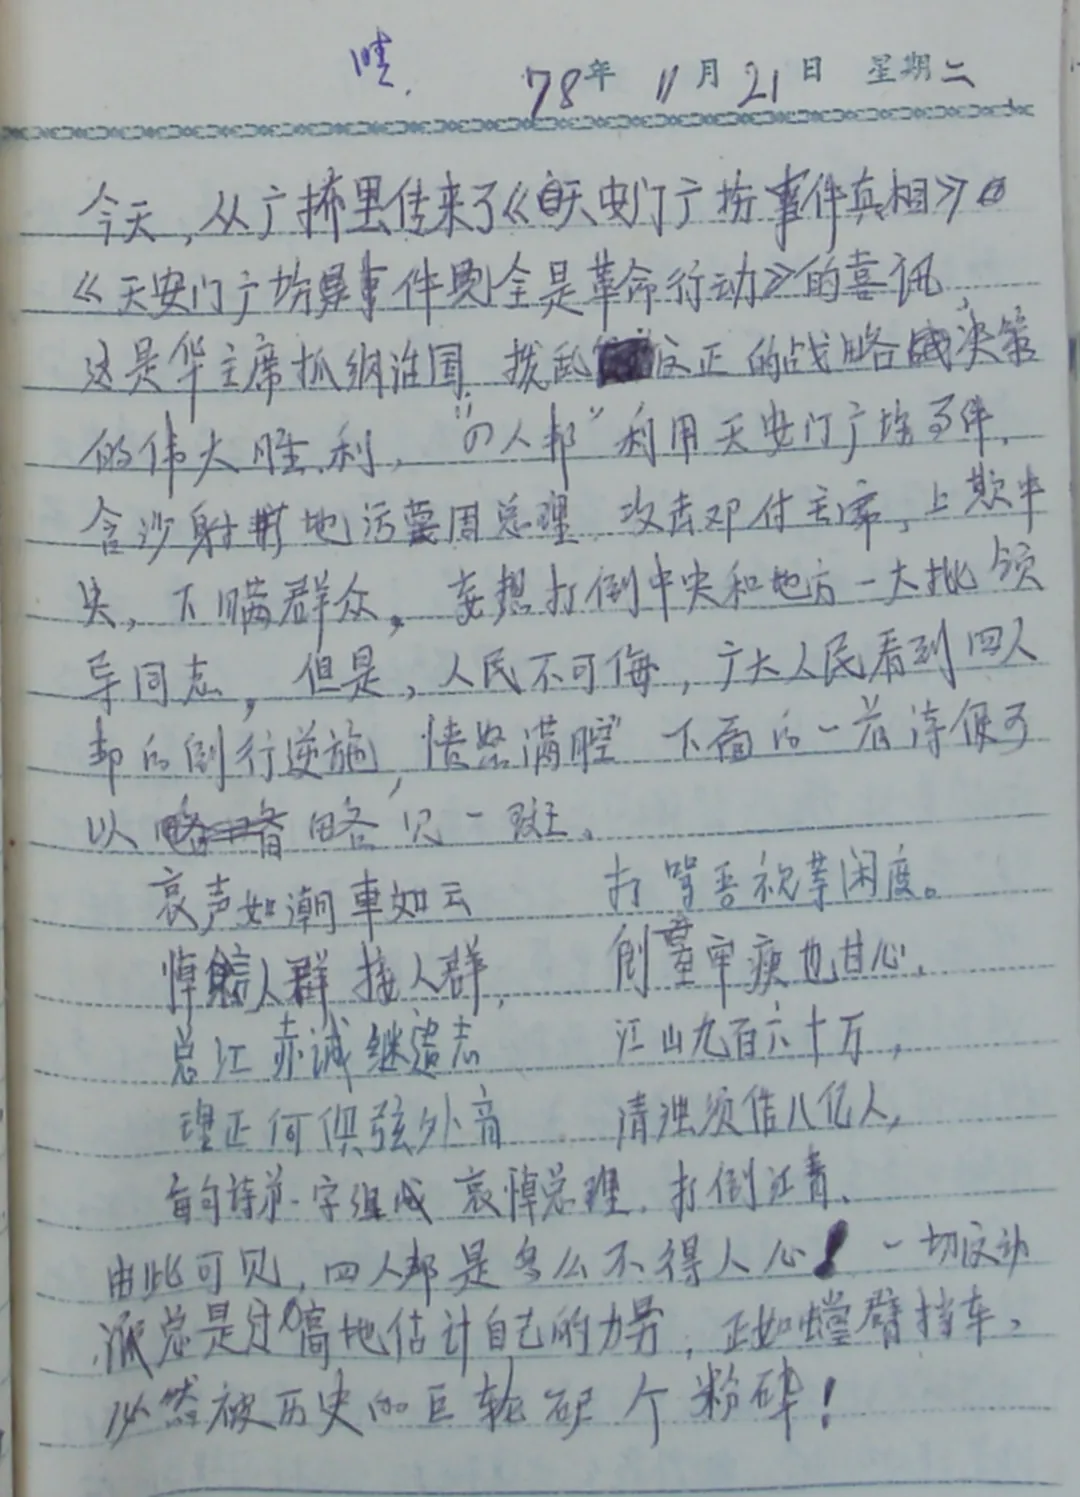 晴. 78年 11月 21日 星期二
今天,从广播里传来了《天安门广场事件真相》
《天安门广场事件完全是革命行动》的喜讯,
这是华主席抓纲治国 拨乱反正的战略决策
的伟大胜利,“四人邦”利用天安门广场事件,
含沙射影地污蔑周总理 攻击邓付主席,上欺中
央,下瞒群众,妄想打倒中央和地方一大批领
导同志,但是,人民不可侮,广大人民看到四人
邦的倒行逆施,愤怒满腔 下面的一首诗便可
以 略见一斑。
哀声如潮車如云 打 吾视等闲度。
悼 人群接人群, 倒 牢痍也甘心,
总江赤诚继遗志 江山九百六十万,
理正何惧弦外音 清浊须借八亿人,
每句诗第一字组成 哀悼总理,打倒江青、
由此可见,四人邦是多么不得人心! 一切反动
派总是过高地估计自己的力量,正如螳臂挡车,
必然被历史的巨轮 个粉碎!